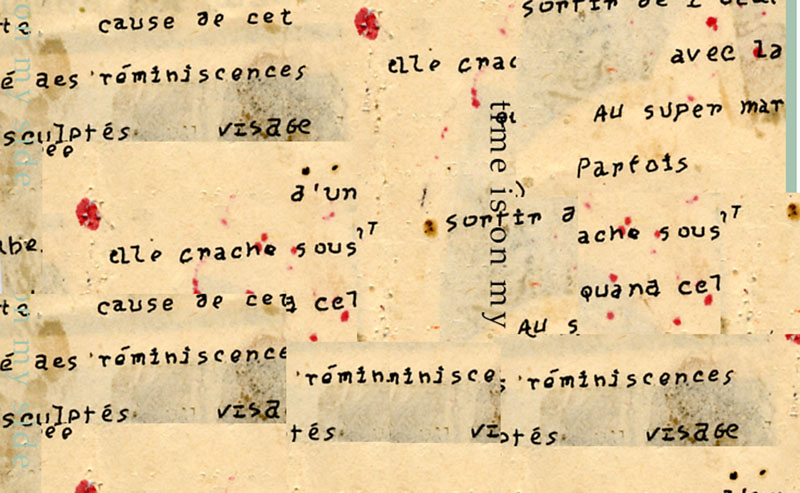 cause de cet
sortir de l'
elle crac
avec la
é des réminiscences
Au super mar
sculptés visage
Parfois
d'un
sortir d
elle crache sous
ache sous
quand cel
cause de cet
cel
Au s
é des réminiscence
réminniniscе
réminiscences
sculptés visa
tés
tés visage
time is on my
on my side
on my side